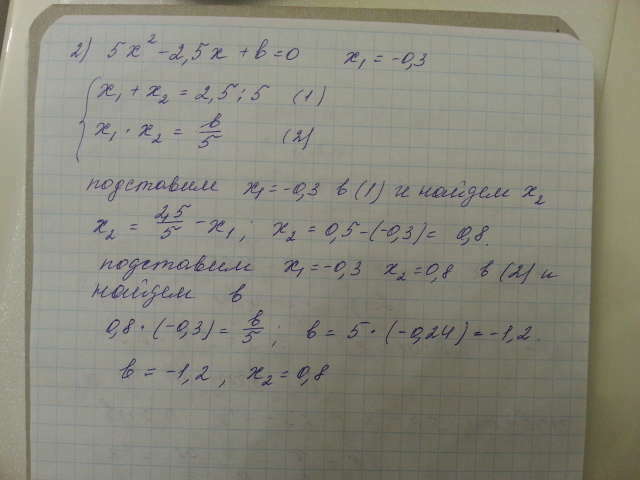 2) 5x² - 2,5x + в = 0 x₁ = -0,3
x₁ + x₂ = 2,5 : 5 (1)
x₁ · x₂ = в/5 (2)
подставим x₁ = -0,3 в (1) и найдем x₂
x₂ = 2,5/5 - x₁ ; x₂ = 0,5 - (-0,3) = 0,8.
подставим x₁ = -0,3 x₂ = 0,8 в (2) и
найдем в
0,8 · (-0,3) = в/5 ; в = 5 · (-0,24) = -1,2.
в = -1,2 , x₂ = 0,8